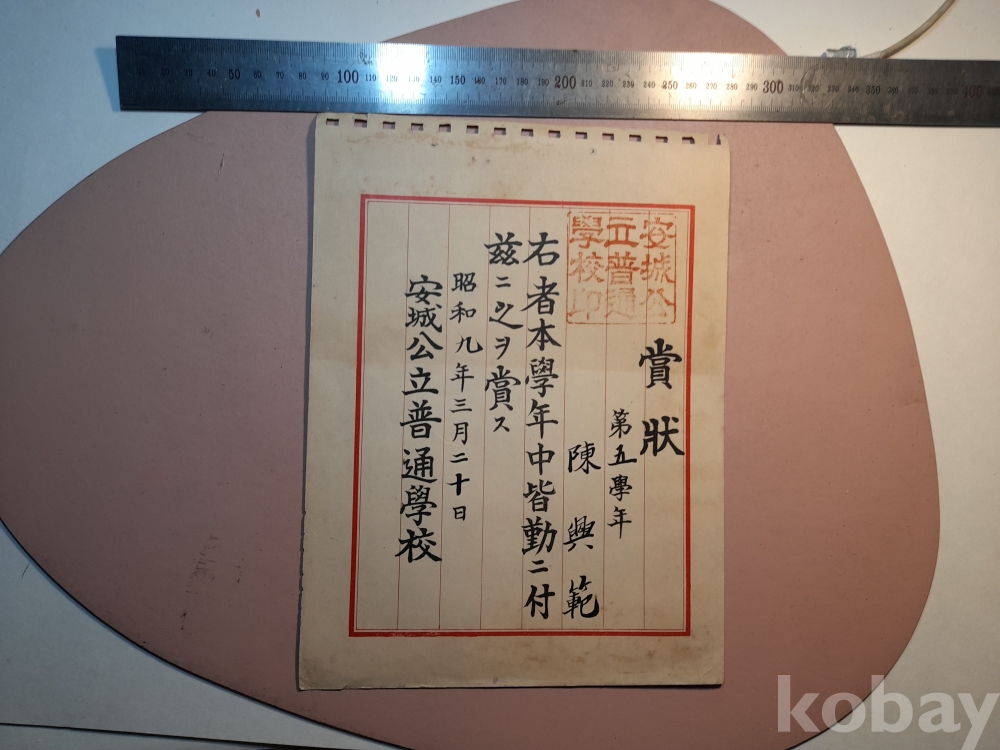 50 100 110 120 130 140 150 160 170 180 190 200 210 220 230 240 250 260 270 280 290 300 310 320 330 340 350 360 370 380 390 400
安城公
立普通
學校印
賞狀
第五學年
陳興範
右者本學年中皆勤ニ付
茲ニ之ヲ賞ス
昭和九年三月二十日
安城公立普通學校
kobay